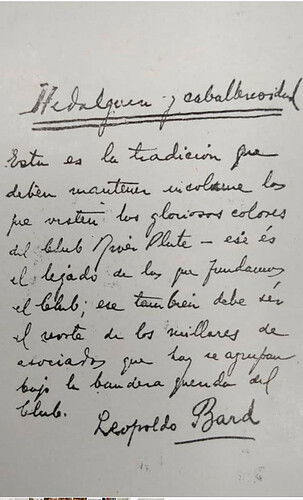 Hidalguía y caballerosidad
Esta es la tradición que
deben mantener incolume los
que visten los gloriosos colores
del Club River Plate - ese és
el legado de los que fundamos
el Club; ese también debe sér
el norte de los millares de
asociados que hoy se agrupan
bajo la bandera querida del
Club.
Leopoldo Bard